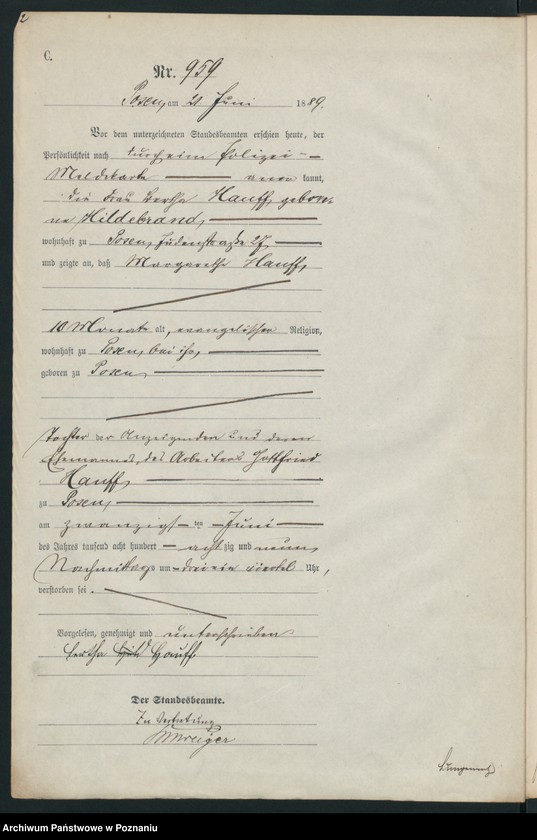 2
C.
Nr. 959
Posen, am 21 Juni 1889.
Vor dem unterzeichneten Standesbeamten erschien heute, der
Persönlichkeit nach durch eine Polizei-
Meldekarte anerkannt,
die Frau Bertha Hauff, gebore-
ne Hildebrand,
wohnhaft zu Posen, Judenstraße 27
und zeigte an, daß Margarethe Hauff,
10 Monate alt, evangelischer Religion,
wohnhaft zu Posen, bei ihr,
geboren zu Posen
Tochter der Anzeigenden und deren
Ehemannes, des Arbeiters Gottfried
Hauff
zu Posen,
am zwanzigsten Juni
des Jahres tausend acht hundert achtzig und neun
Nachmittags um drei ein viertel Uhr,
verstorben sei.
Vorgelesen, genehmigt und unterschrieben
Bertha Hauff
Der Standesbeamte.
In Vertretung
Archiwum Państwowe w Poznaniu